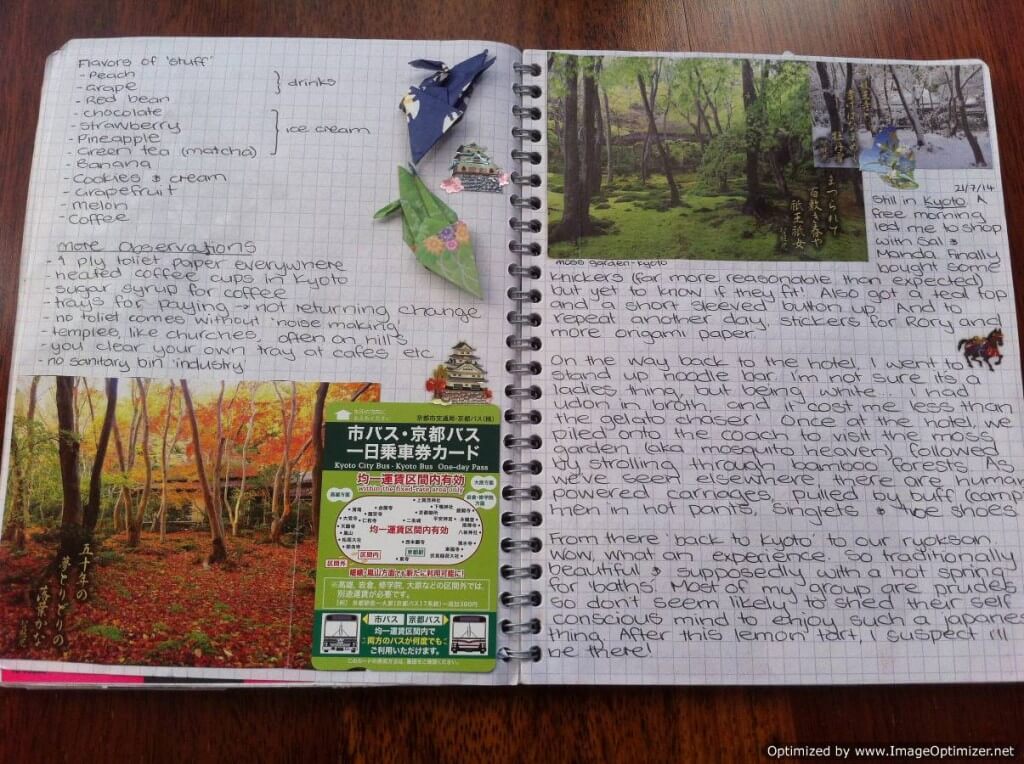 Flavors of 'stuff'
- Peach
- Grape
- Red bean
} drinks
- chocolate
- Strawberry
- Pineapple
- Green tea (matcha)
} ice cream
- Banana
- Cookies & cream
- Grapefruit
- melon
- Coffee
more observations
- 1 ply toilet paper everywhere
- heated coffee cups in Kyoto
- sugar syrup for coffee
- trays for paying → not returning change
- no toilet comes without 'noise making'
- temples, like churches, often on hills
- you clear your own tray at cafes etc
- no sanitary bin 'industry'
五十年の
夢とりどりの
落葉かな
京都市交通局・京都バス(株)
市バス・京都バス
一日乗車券カード
Kyoto City Bus・Kyoto Bus One-day Pass
均一運賃区間内有効
within the fixed-rate area only
高雄方面
大原方面
岩倉・修学院方面
上賀茂神社
下鴨神社
京都御所
平安神宮
金閣寺
仁和寺
二条城
嵐山
西本願寺
東福寺
伏見稲荷大社
清水寺
八坂神社
均一運賃区間内有効
京都駅
区間内
区間外
嵯峨・嵐山方面でも新たに利用可能に!
※高雄、岩倉、修学院、大原などの区間外では、
別途運賃が必要です。
市バス 京都バス
均一運賃区間内で
両方のバスが何度でも
ご利用いただけます。
まつられて
百敷き春や
祇王祇女
moss garden - kyoto
21/7/14
Still in Kyoto. A
free morning
led me to shop
with Sal &
Manda. Finally
bought some
knickers (far more reasonable than expected)
but yet to know if they fit! Also got a teal top
and a short sleeved button up. And to
repeat another day, stickers for Rory and
more origami paper.
On the way back to the hotel, I went to a
stand up noodle bar. I'm not sure its a
ladies thing, but being white... I had
udon in broth and it cost ¥ less than
the gelato chaser. Once at the hotel, we
piled onto the coach to visit the moss
garden (aka mosquito heaven) followed
by strolling through bamboo forests. As
we've seen elsewhere, there are human
powered carriages, pulled by buff (camp)
men in hot pants, singlets & toe shoes.
From there 'back to Kyoto' to our ryokan.
Wow, what an experience. So traditionally
beautiful & supposedly with a hot spring
for 'baths'. Most of my group are prudes
so don't seem likely to shed their self
conscious mind to enjoy such a japanese
thing. After this lemon tart I suspect I'll
be there!
Optimized by www.ImageOptimizer.net